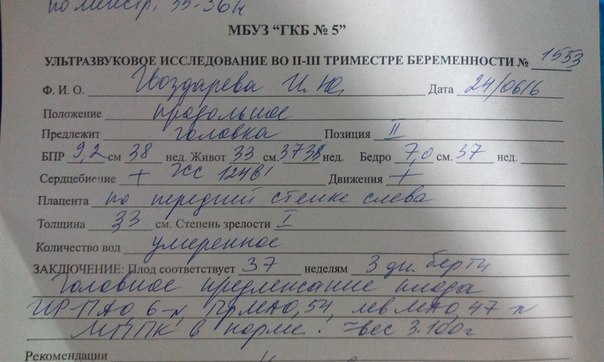 по менстр. 35-36н
МБУЗ "ГКБ № 5"
УЛЬТРАЗВУКОВОЕ ИССЛЕДОВАНИЕ ВО II-III ТРИМЕСТРЕ БЕРЕМЕННОСТИ № 1553
Ф. И. О. Гвоздарева И.Ю. Дата 24/06/6
Положение продольное
Предлежит головка Позиция II
БПР 9,2 см 38 нед. Живот 33 см. 37 38 нед. Бедро 7,0 см. 37 нед.
Сердцебиение + ЧСС 124 Движения +
Плацента по передней стенке слева
Толщина 33 см. Степень зрелости I
Количество вод умеренное
ЗАКЛЮЧЕНИЕ: Плод соответствует 37 неделям 3 дн. берем
Головное предлежание плода
ИР-ПАО,6-N, Пр МАО,54, лев МАО,47-N
МППК в норме! ≈вес 3.100г
Рекомендации